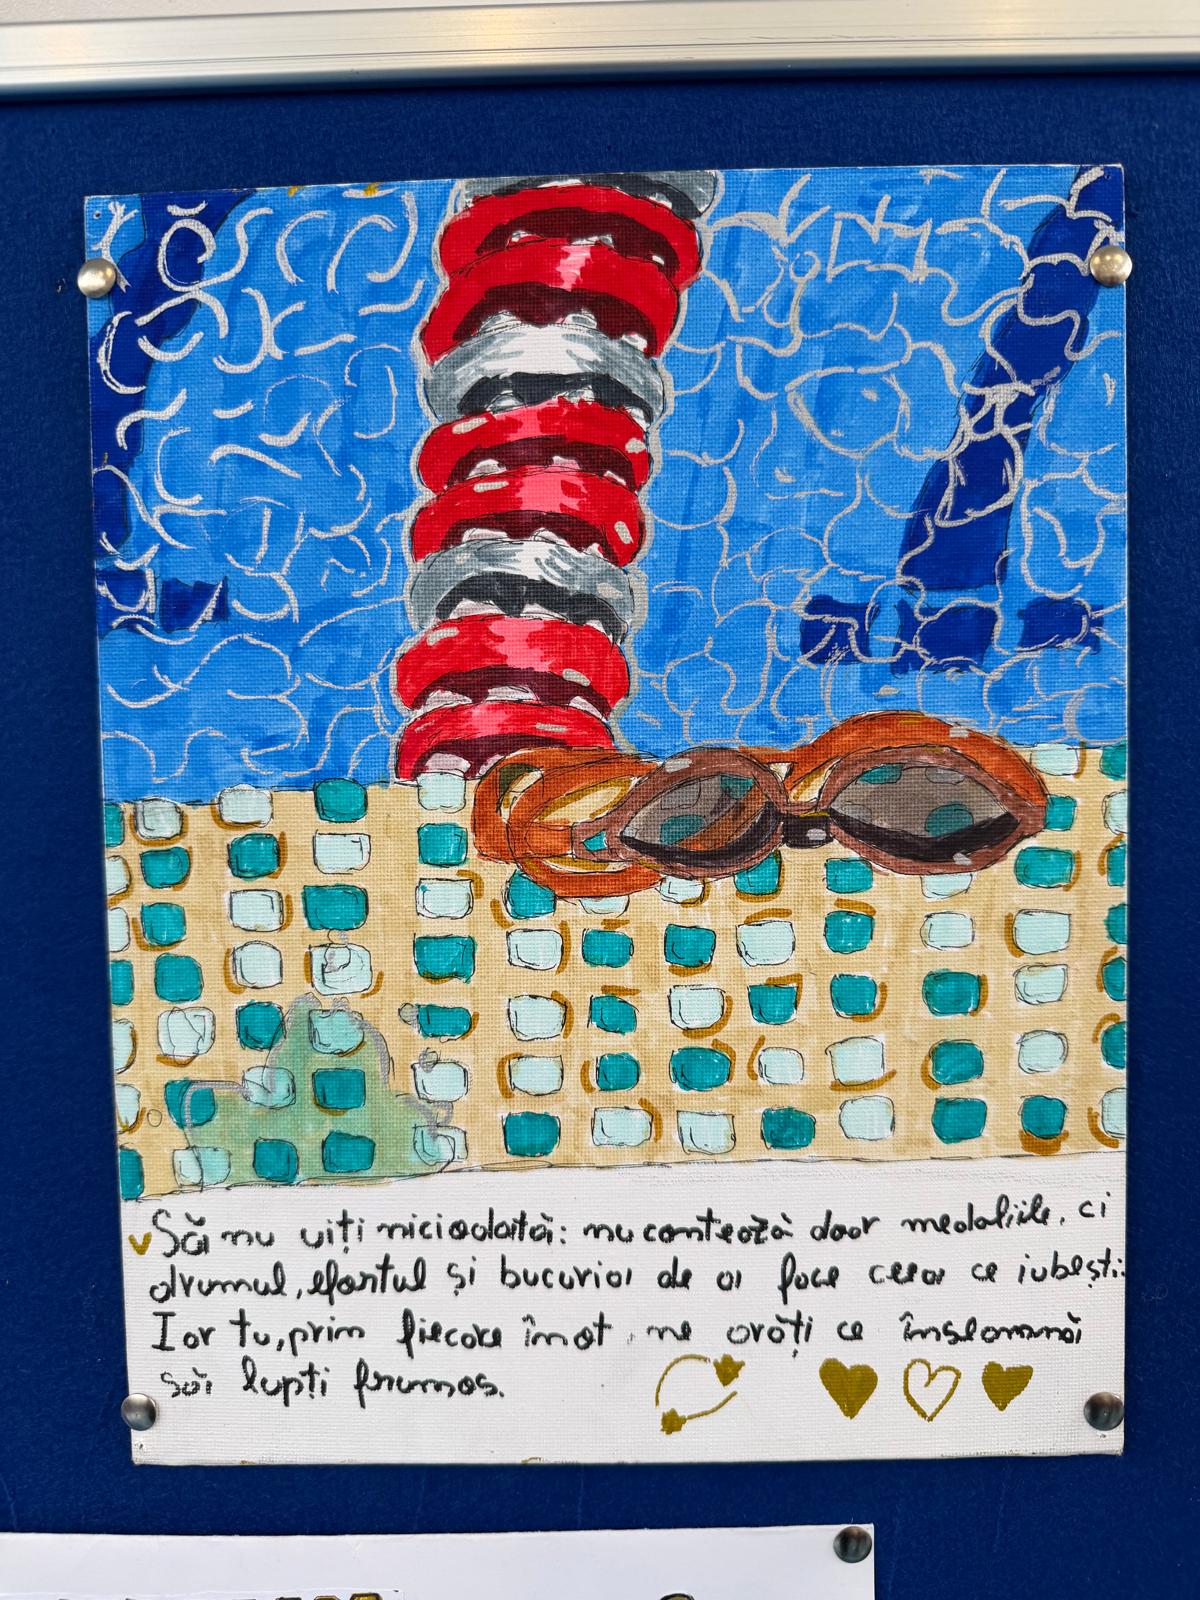 Să nu uiți niciodată: nu contează doar medaliile, ci
drumul, efortul și bucuria de a face ceea ce iubești.
Iar tu, prin fiecare înot, ne arăți ce înseamnă
să lupți frumos.